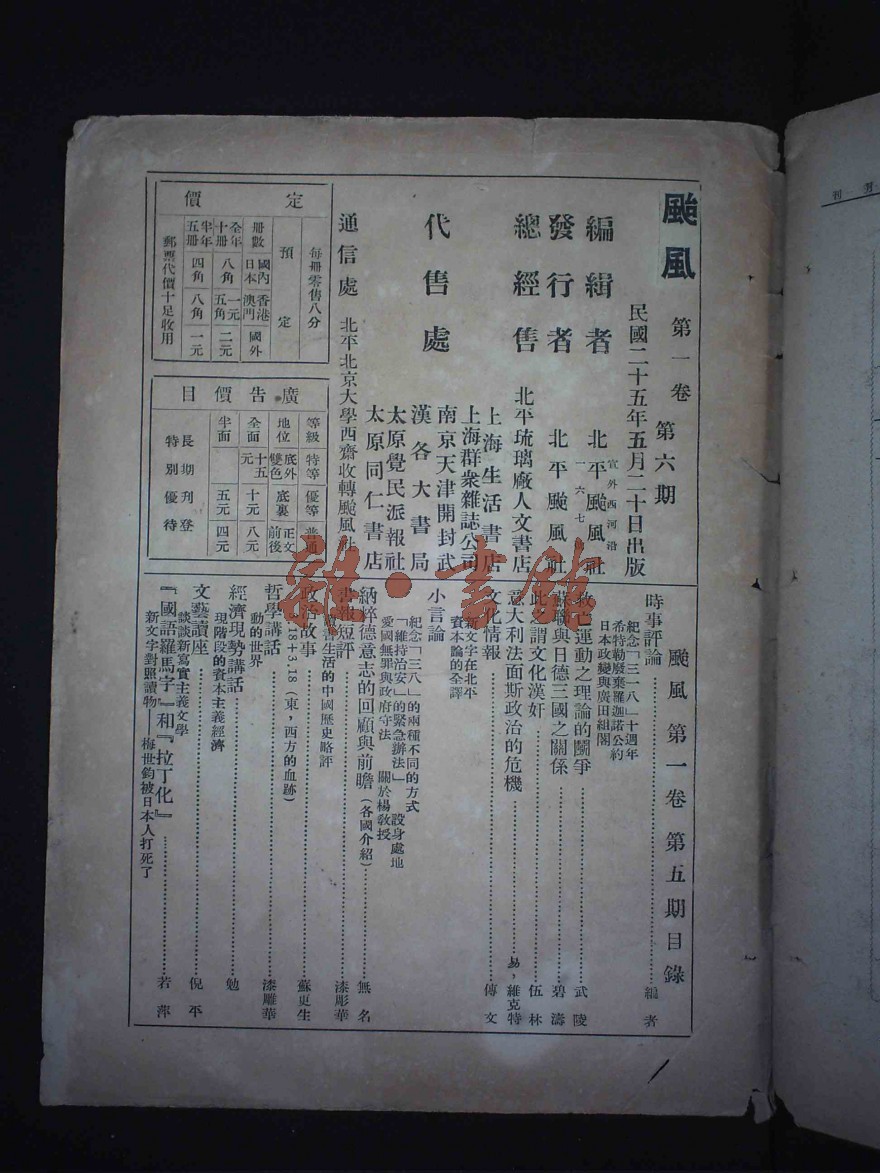 颱風
第一卷 第六期
民國二十五年五月二十日出版
編緝者 北平颱風社
宣外西河沿一六七
發行者 北平颱風社
總經售 北平琉璃廠人文書店
代售處
上海生活書店
上海群衆雜誌公司
南京天津開封武
漢各大書局
太原覺民派報社
太原同仁書店
通信處 北平北京大學西齋收轉颱風社
定價
每冊零售八分
預定
冊數 國內日本 香港澳門 國外
全年十冊 八角 一元五角 二元
半年五冊 四角 八角 一元
郵票代價十足收用
廣告價目
等級 特等 優等 普通
地位 底外雙色 底裏 正文前後
全面 十五元 十元 八元
半面 五元 四元
長期刊登
特別優待
颱風第一卷第五期目錄
時事評論 編者
紀念「三一八」十週年
希特勒廢棄羅迦諾公約
日本政變與廣田組閣
救亡運動之理論的鬭爭 武陵
蘇聯與日德三國之關係 碧濤
此之謂文化漢奸 伍林
意大利法西斯政治的危機 易,維克特
文化情報 傅文
新文字在北平
資本論的全譯
小言論
紀念「三八」的兩種不同的方式
「維持治安」的緊急辦法 設身處地
愛國無罪與政府守法 關於楊敎授
納粹德意志的回顧與前瞻(各國介紹) 無名
書報短評 漆彫華
生活的中國歷史略評
政治故事 蘇更生
3.18+3.18(東,西方的血跡)
哲學講話 漆雕華
動的世界
經濟現勢講話 勉
現階段的資本主義經濟
文藝讀座 倪平
談談新寫實主義文學
『國語羅馬字』和『拉丁化』 若萍
新文字對照讀物——梅世鈞被日本人打死了
雜·書館
月刊